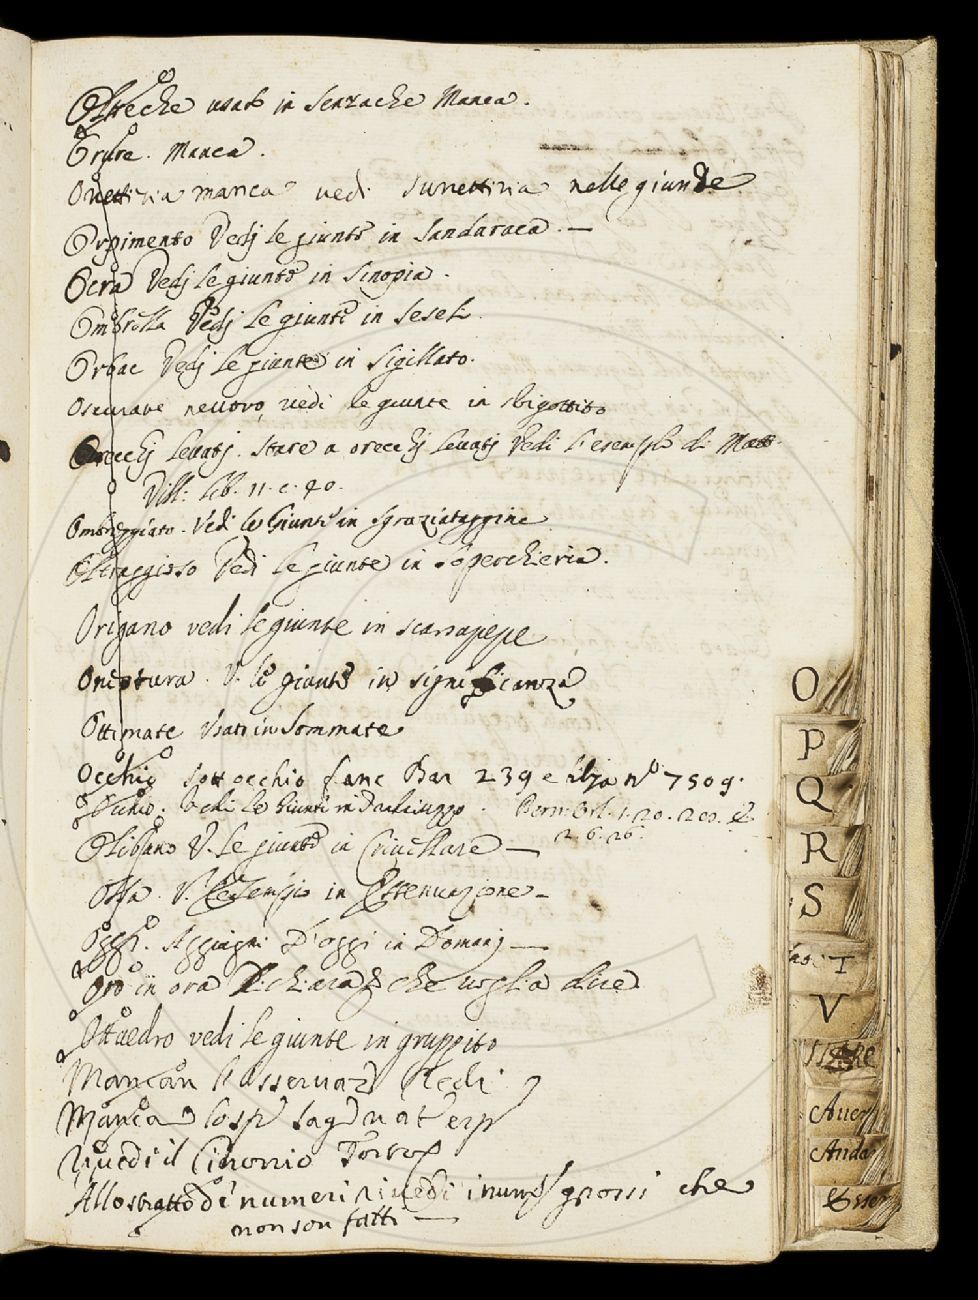 Oltreche usato in Senzache Manca.
Manca.
Onettizia manca vedi Sunettizia nelle giunte
Orpimento Vedj le giunte in Sandaraca. —
Ocra Vedj le giunte in Sinopia.
Ombrella Vedj le giunte in Seseli.
Orbac Vedj le giunte in Sigillato.
Oscurare neutro, vedi le giunte in sbigottito
Orecchj levatj. Stare a orecchj levatj Vedi l'esempio di Matt.
Vill: lib. 11. c. 90.
Ombreggiato. Vedi le Giunte in Sgraziataggine
Oltraggioso Vedi le giunte in Soperchieria.
Origano vedi le giunte in scarapepe
Onciatura. V. le giunte in significanza
Ottimate Usato in Sommate
Occhio sott occhio Franc Bar 239 e nº 7509.
Vedi le Giunti in
Bern: Orl. 1. 20. 200. &
2. 6. 26.
Olibano V. le giunte in Crivellare —
Ossa. V. l'Esempio in Estenuazione —
Oggi. Aggiugni D'oggi in Domanj —
Oro in ora Dichiara che voglia dire
Ottaedro vedi le giunte in gruppito
Mancan l'osservaz Redi
Manca
Rivedi il Cinonio
Allo stratto di numeri rivedi i num grossi che
non son fatti —
O
P
Q
R
S
T
V
Aver
Anda
Esser